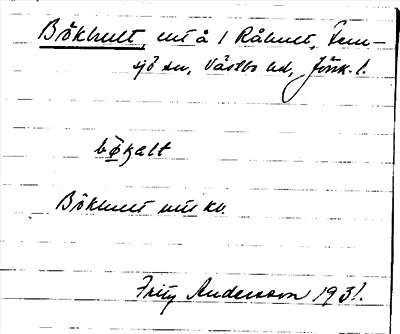 Bökhult, utt å 1 Råhult, Fem-
sjö sn, Västbo hd, Jönk. l.
bökalt
Bökhult utt kb.
Fritz Andersson 1931.